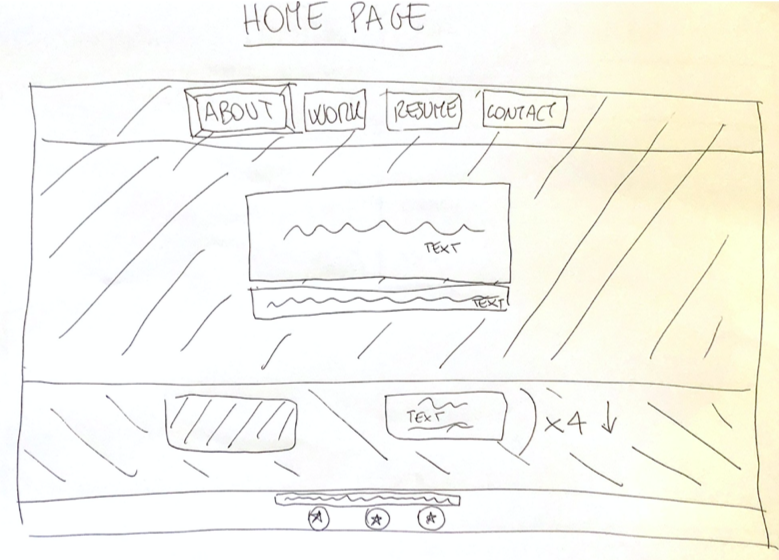 HOME PAGE
ABOUT WORK RESUME CONTACT
TEXT
TEXT
TEXT x4